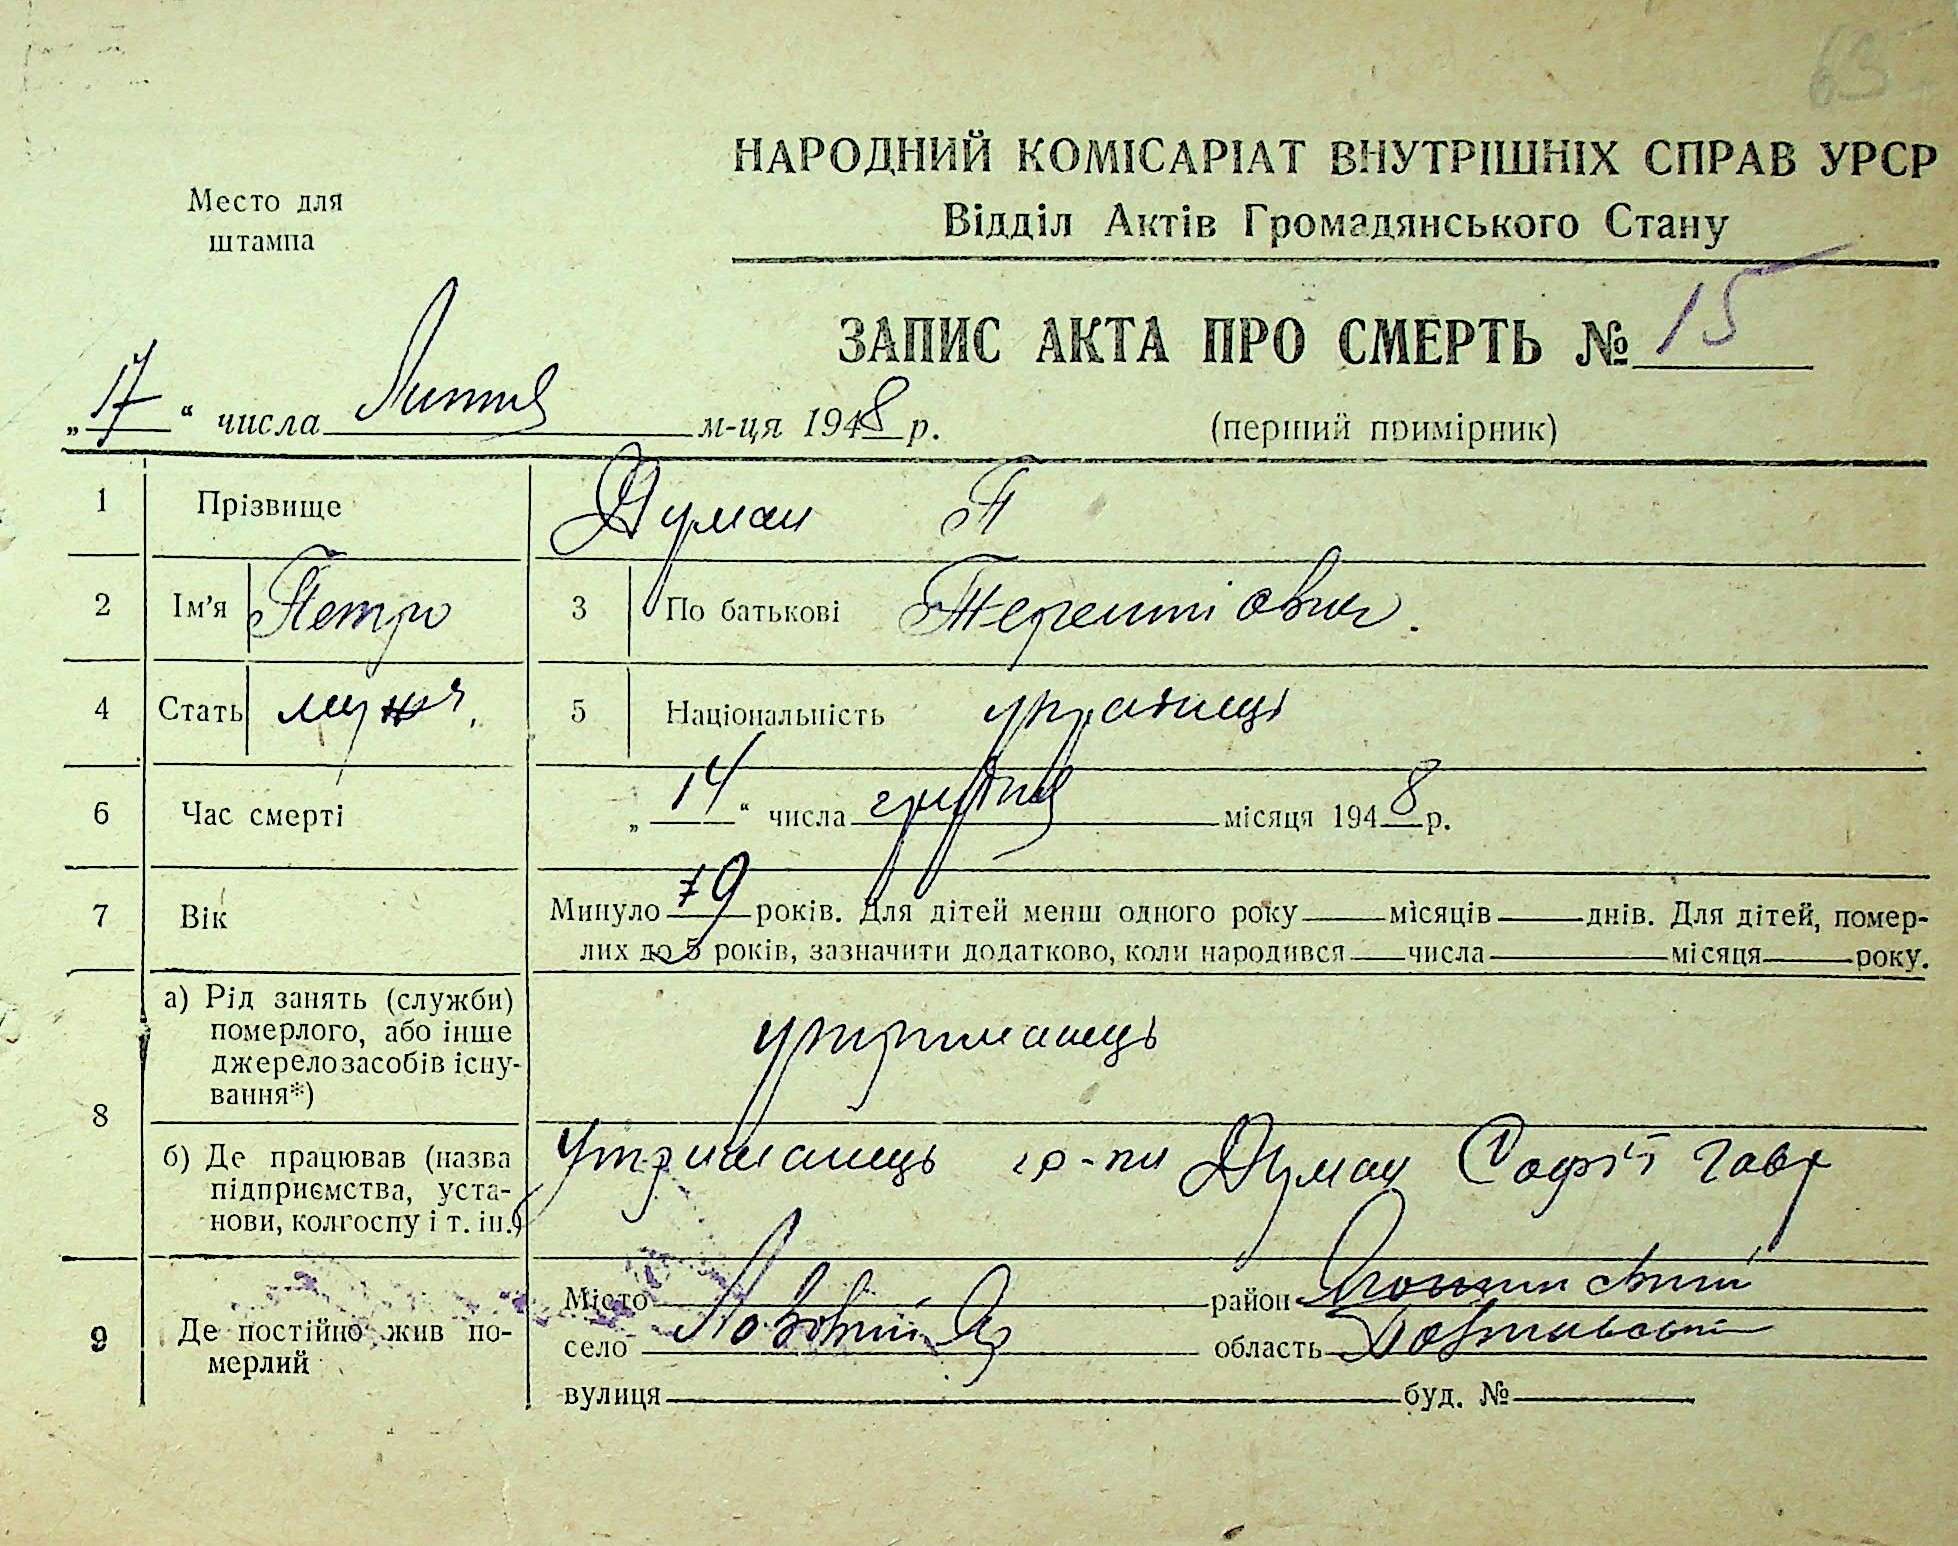 65
НАРОДНИЙ КОМІСАРІАТ ВНУТРІШНІХ СПРАВ УРСР
Место для
штампа
Відділ Актів Громадянського Стану
ЗАПИС АКТА ПРО СМЕРТЬ № 15
„17" числа Липня м-ця 1948 р.
(перший примірник)
1 Прізвище Думан П
2 Ім'я Петро 3 По батькові Терентіович.
4 Стать муж. 5 Національність українець
6 Час смерті „14" числа грудня місяця 1948 р.
7 Вік Минуло 79 років. Для дітей менш одного року місяців днів. Для дітей, помер-
лих до 5 років, зазначити додатково, коли народився числа місяця року.
8 а) Рід занять (служби)
померлого, або інше
джерело засобів існу-
вання*)
утриманець
б) Де працював (назва
підприємства, уста-
нови, колгоспу і т. ін.)
Утриманець гр-ки Думан Софії Гавр
9 Де постійно жив по-
мерлий
Місто район
село Лозовий Яр область Полтавський
вулиця буд. №